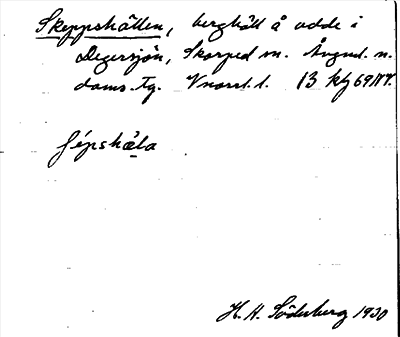 Skeppshällen, berghäll å udde i
Degersjön, Skorped sn. Ångml. n.
doms. tg. Vnorrl. l. 13 kbf 69
fépshæla
H. H. Söderberg 1930